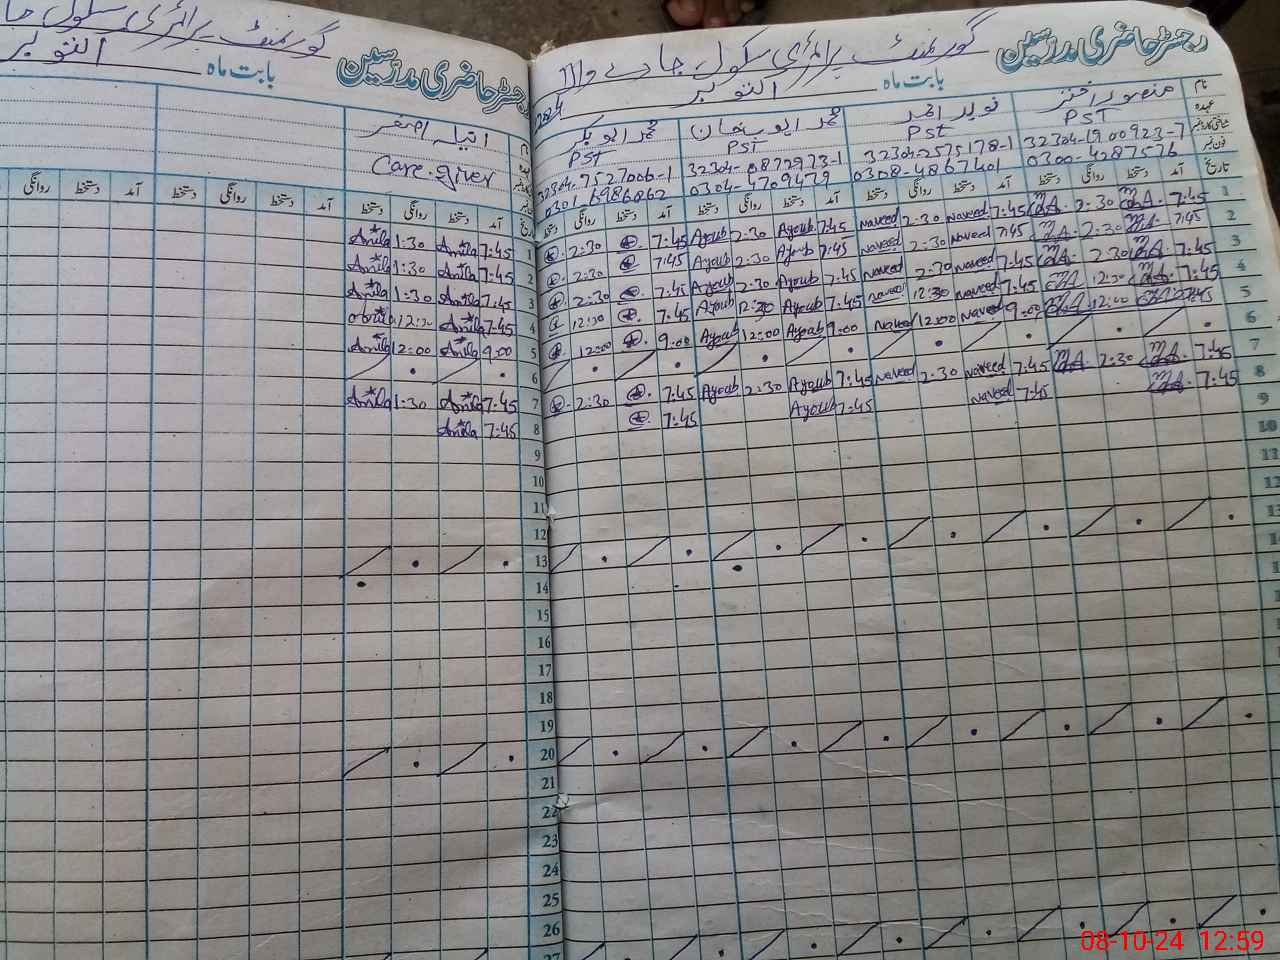 رجسٹر حاضری مدرسین
گورنمنٹ پرائمری سکول جا دے والا
بابت ماہ اکتوبر
نام
عہدہ
منصور اختر
PST
32304-1900923-7
0300-4287576
نوید احمر
Pst
32304-2575178-1
0308-4867401
محمد ایوب خان
PST
32304-0872973-1
0304-4709479
محمد ابوبکر
PST
32304-7527006-1
0301-6986862
تاریخ آمد دستخط روانگی دستخط آمد دستخط روانگی دستخط آمد دستخط روانگی دستخط آمد دستخط روانگی دستخط
1 7:45 2:30 7:45 Naveed 2:30 Naveed 7:45 Ayoub 2:30 Ayoub 7:45 2:30
2 7:45 2:30 7:45 Naveed 2:30 Naveed 7:45 Ayoub 2:30 Ayoub 7:45 2:30
3 7:45 2:30 7:45 Naveed 2:30 Naveed 7:45 Ayoub 2:30 Ayoub 7:45 2:30
4 7:45 12:30 7:45 Naveed 12:30 Naveed 7:45 Ayoub 12:30 Ayoub 7:45 12:30
5 12:00 9:00 Naveed 12:00 Naveed 9:00 Ayoub 12:00 Ayoub 9:00 12:00
6
7 7:45 2:30 7:45 Naveed 2:30 Naveed 7:45 Ayoub 2:30 Ayoub 7:45 2:30
8 7:45 7:45 Naveed 7:45 Ayoub 7:45
9
10
11
12
13
رجسٹر حاضری مدرسین
گورنمنٹ پرائمری سکول جا
بابت ماہ اکتوبر
انیلہ اصغر
Care-giver
تاریخ آمد دستخط روانگی دستخط آمد دستخط روانگی دستخط آمد دستخط روانگی
1 7:45 Anila 1:30 Anila
2 7:45 Anila 1:30 Anila
3 7:45 Anila 1:30 Anila
4 7:45 Anila 12:30 Anila
5 9:00 Anila 12:00 Anila
6
7 7:45 Anila 1:30 Anila
8 7:45 Anila
9
10
11
12
13
14
15
16
17
18
19
20
21
22
23
24
25
26
27
08-10-24 12:59